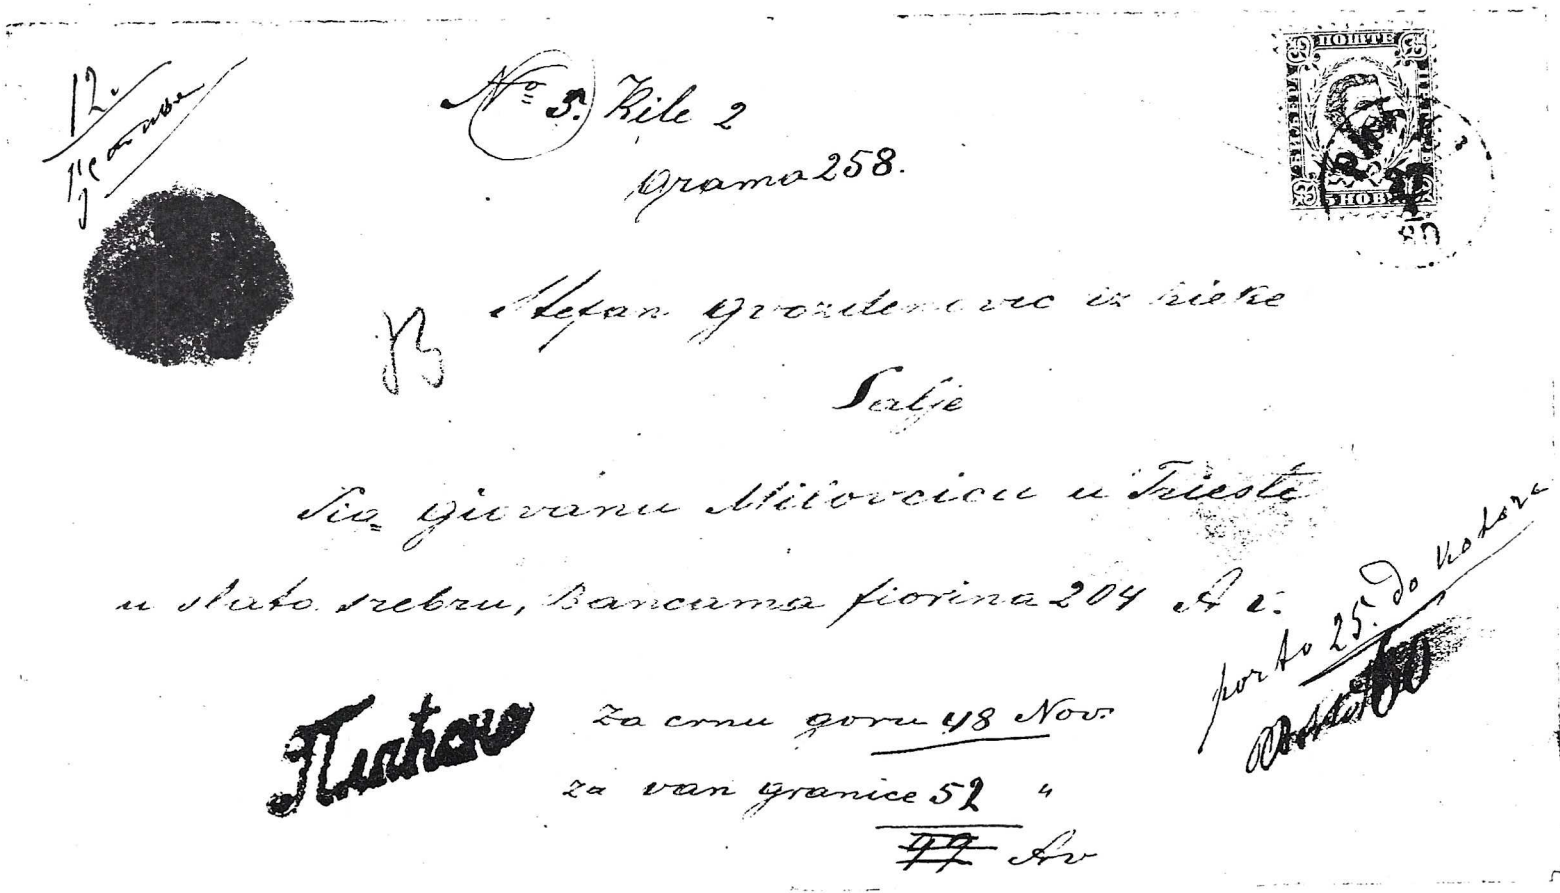 12.
Цетиње
No 5. Kile 2
grama 258.
ПОШТЕ
5 НОВ
Stefan Gvozdenovic iz Rieke
Salje
Sia= Giovanu Milovcicu u Trieste
u slato srebru, Bancama fiorina 204 A v.
porto 25. do Kotora
Плаћено
za crnu goru 48 Nov.
za van granice 52 "
Av